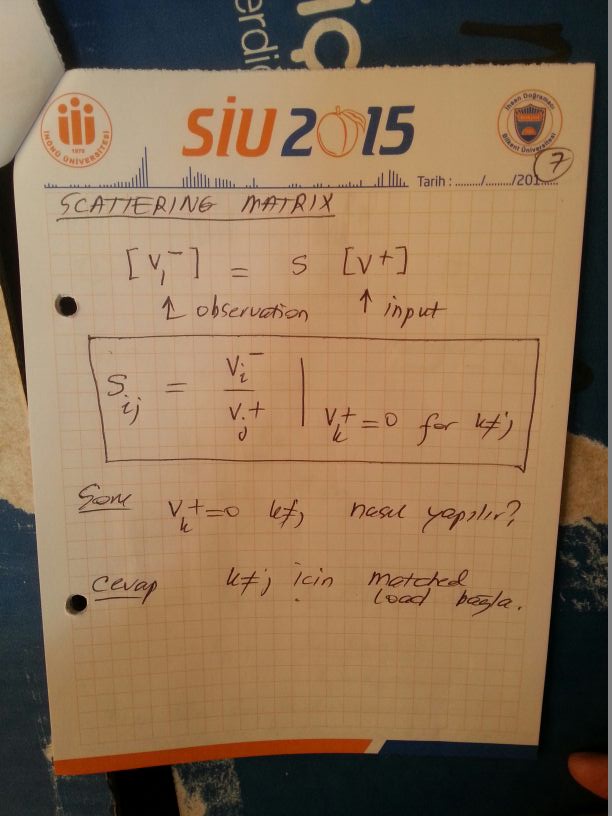 erdi
İNÖNÜ ÜNİVERSİTESİ
1975
SİU2015
İhsan Doğramacı
Bilkent Üniversitesi
7
Tarih : ........./........./201......
SCATTERING MATRIX
[V₁⁻] = S [V+]
↑ observation ↑ input
S_ij = V_i⁻ / V_j⁺ | V_k⁺ = 0 for k≠j
Soru V_k⁺=0 k≠j nasıl yapılır?
Cevap k≠j icin matched
load bağla.